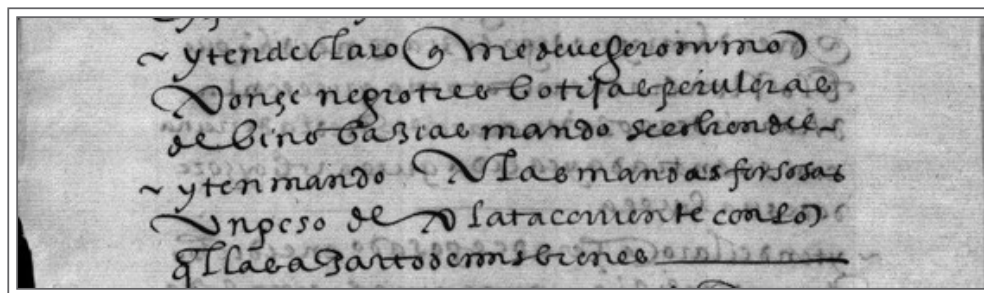 ~ ytendeclaro q me deve geronimo
Ponçe negro tres botijas peruleras
de bino baçias mando se cobren del~
~ yten mando A las mandas forsosas
Un peso de Plata corriente con lo
q llas aparto de mis bienes